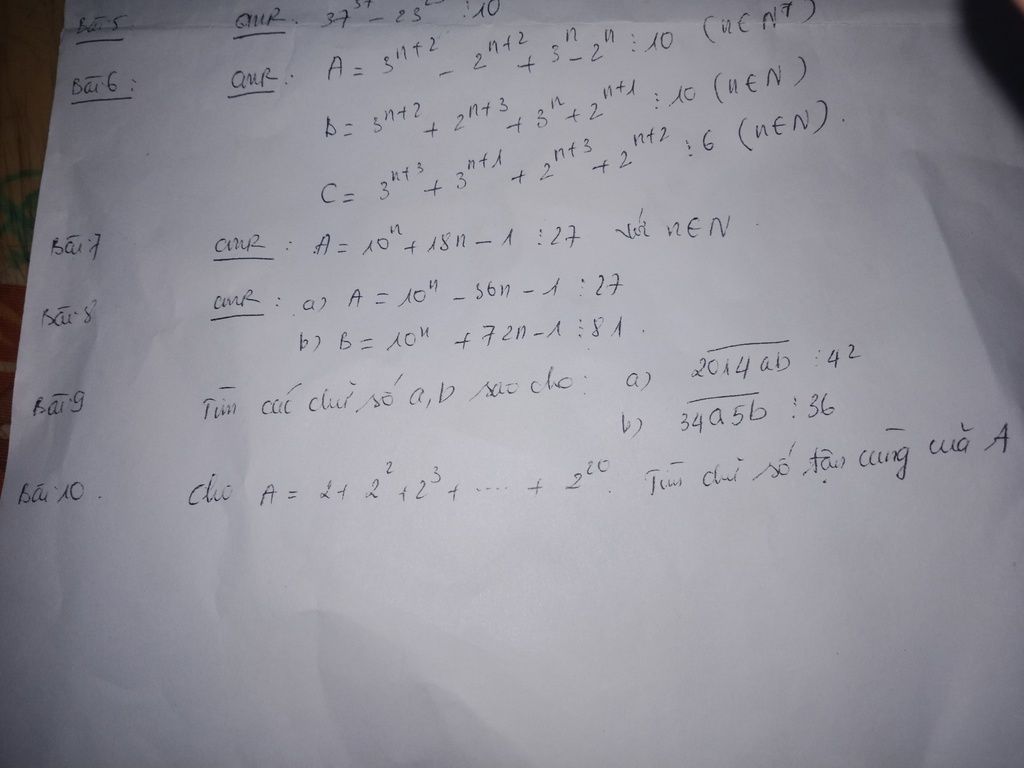 Bài 5 CMR. 37 - 23 ⋮ 10
Bài 6 : CMR : A = 3^{n+2} - 2^{n+2} + 3^n - 2^n ⋮ 10 (n ∈ N^*)
B = 3^{n+2} + 2^{n+3} + 3^n + 2^{n+1} ⋮ 10 (n ∈ N)
C = 3^{n+3} + 3^{n+1} + 2^{n+3} + 2^{n+2} ⋮ 6 (n ∈ N).
Bài 7 CMR : A = 10^n + 18n - 1 ⋮ 27 với n ∈ N.
Bài 8 CMR : a) A = 10^n - 36n - 1 ⋮ 27
b) B = 10^n + 72n - 1 ⋮ 81.
Bài 9 Tìm các chữ số a, b sao cho : a) \overline{2014ab} ⋮ 42
b) \overline{34a5b} ⋮ 36
Bài 10. Cho A = 2 + 2^2 + 2^3 + .... + 2^{20}. Tìm chữ số tận cùng của A